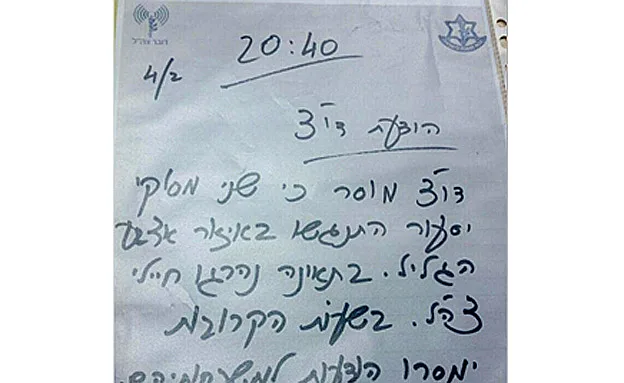 דובר צה"ל
20:40
4/2
הודעת דו"צ
דו"צ מוסר כי שני מסוקי
יסעור התנגשו באיזור אצבע
הגליל. בתאונה נהרגו חיילי
צה"ל. בשעות הקרובות
ימסרו הודעות למשפחותיהם.